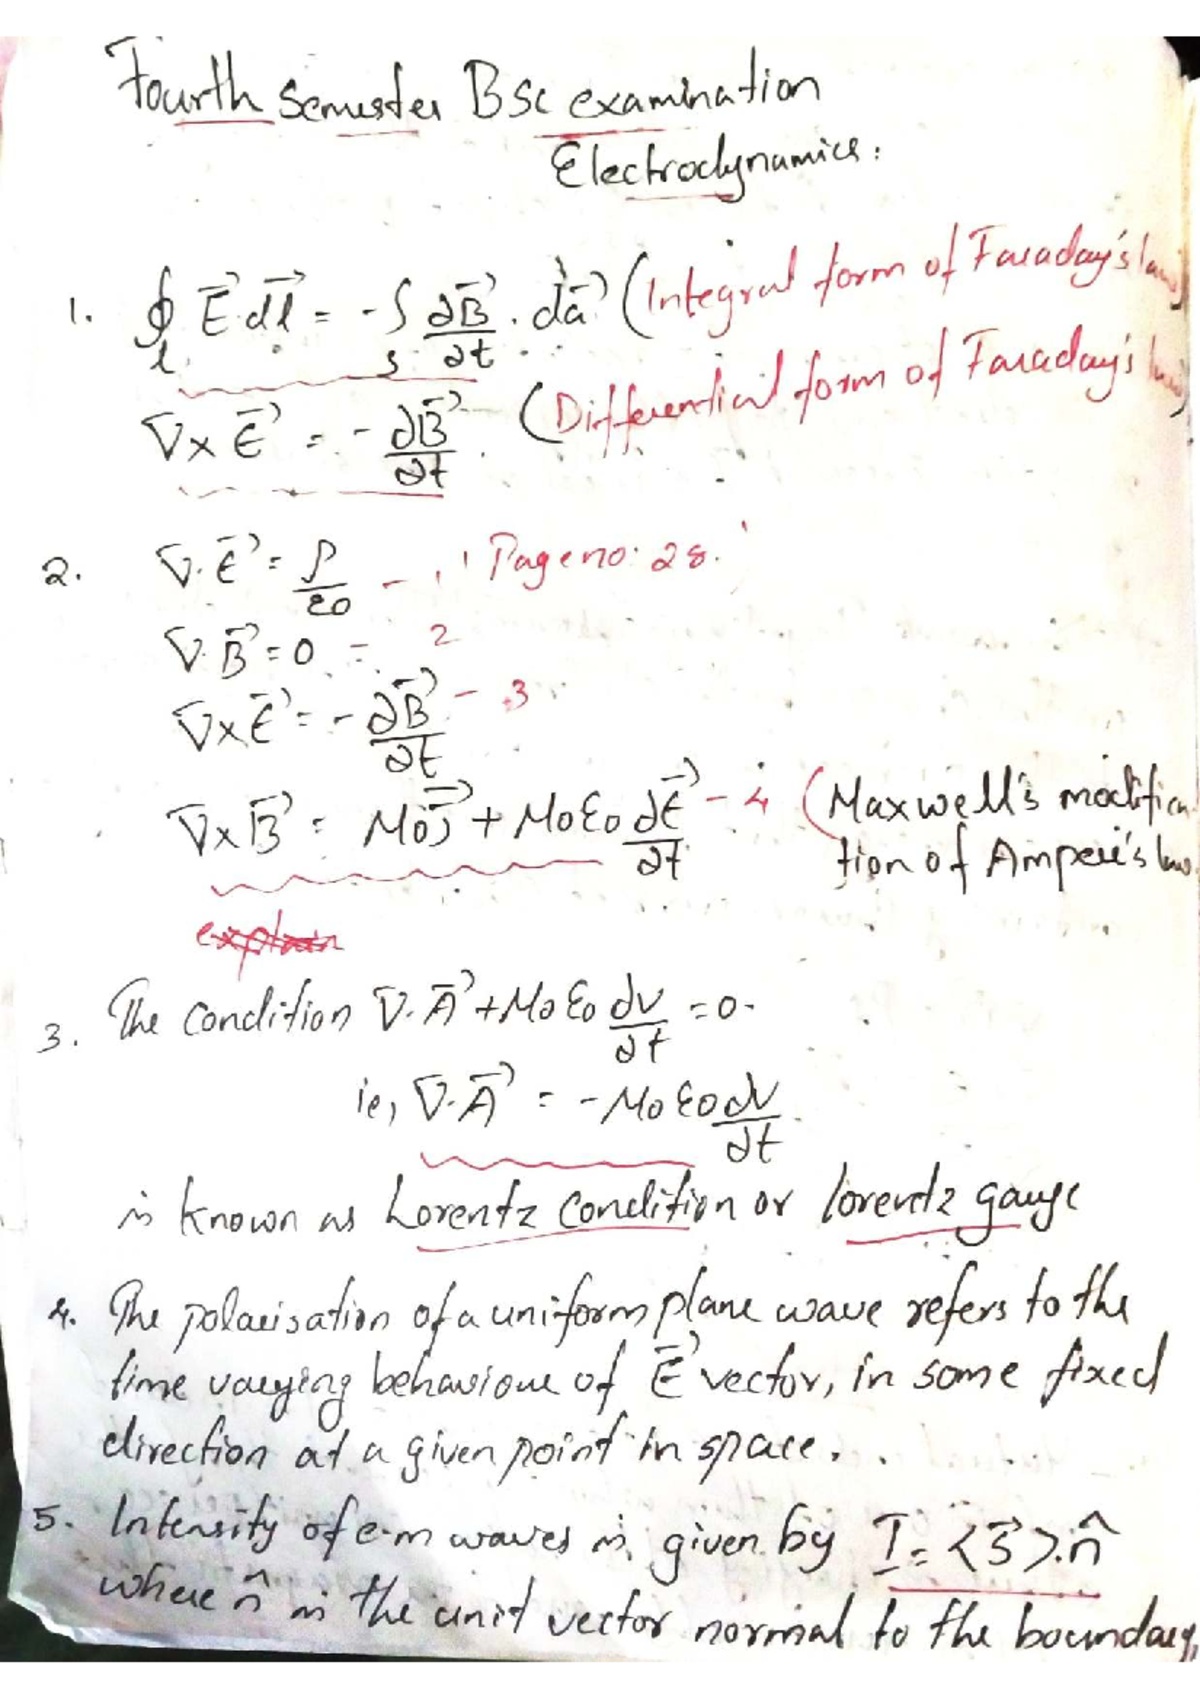 Fourth Semester BSc examination
Electrodynamics:
1. ∮_l E⃗·dl⃗ = -∫_s ∂B⃗/∂t · da⃗ (Integral form of Faraday's law)
∇×E⃗ = -∂B⃗/∂t. (Differential form of Faraday's law)
2. ∇·E⃗ = ρ/ε0 - 1 Page no: 28.
∇·B⃗ = 0 - 2
∇×E⃗ = -∂B⃗/∂t - 3
∇×B⃗ = μ0J⃗ + μ0ε0 ∂E⃗/∂t - 4 (Maxwell's modifica
tion of Ampere's law
explain
3. The condition ∇·A⃗ + μ0ε0 ∂V/∂t = 0.
ie, ∇·A⃗ = -μ0ε0 ∂V/∂t
is known as Lorentz condition or lorentz gauge
4. The polarisation of a uniform plane wave refers to the
time varying behaviour of E⃗ vector, in some fixed
direction at a given point in space.
5. Intensity of e.m waves is given by I = <S⃗>.n̂
where n̂ is the unit vector normal to the boundary,